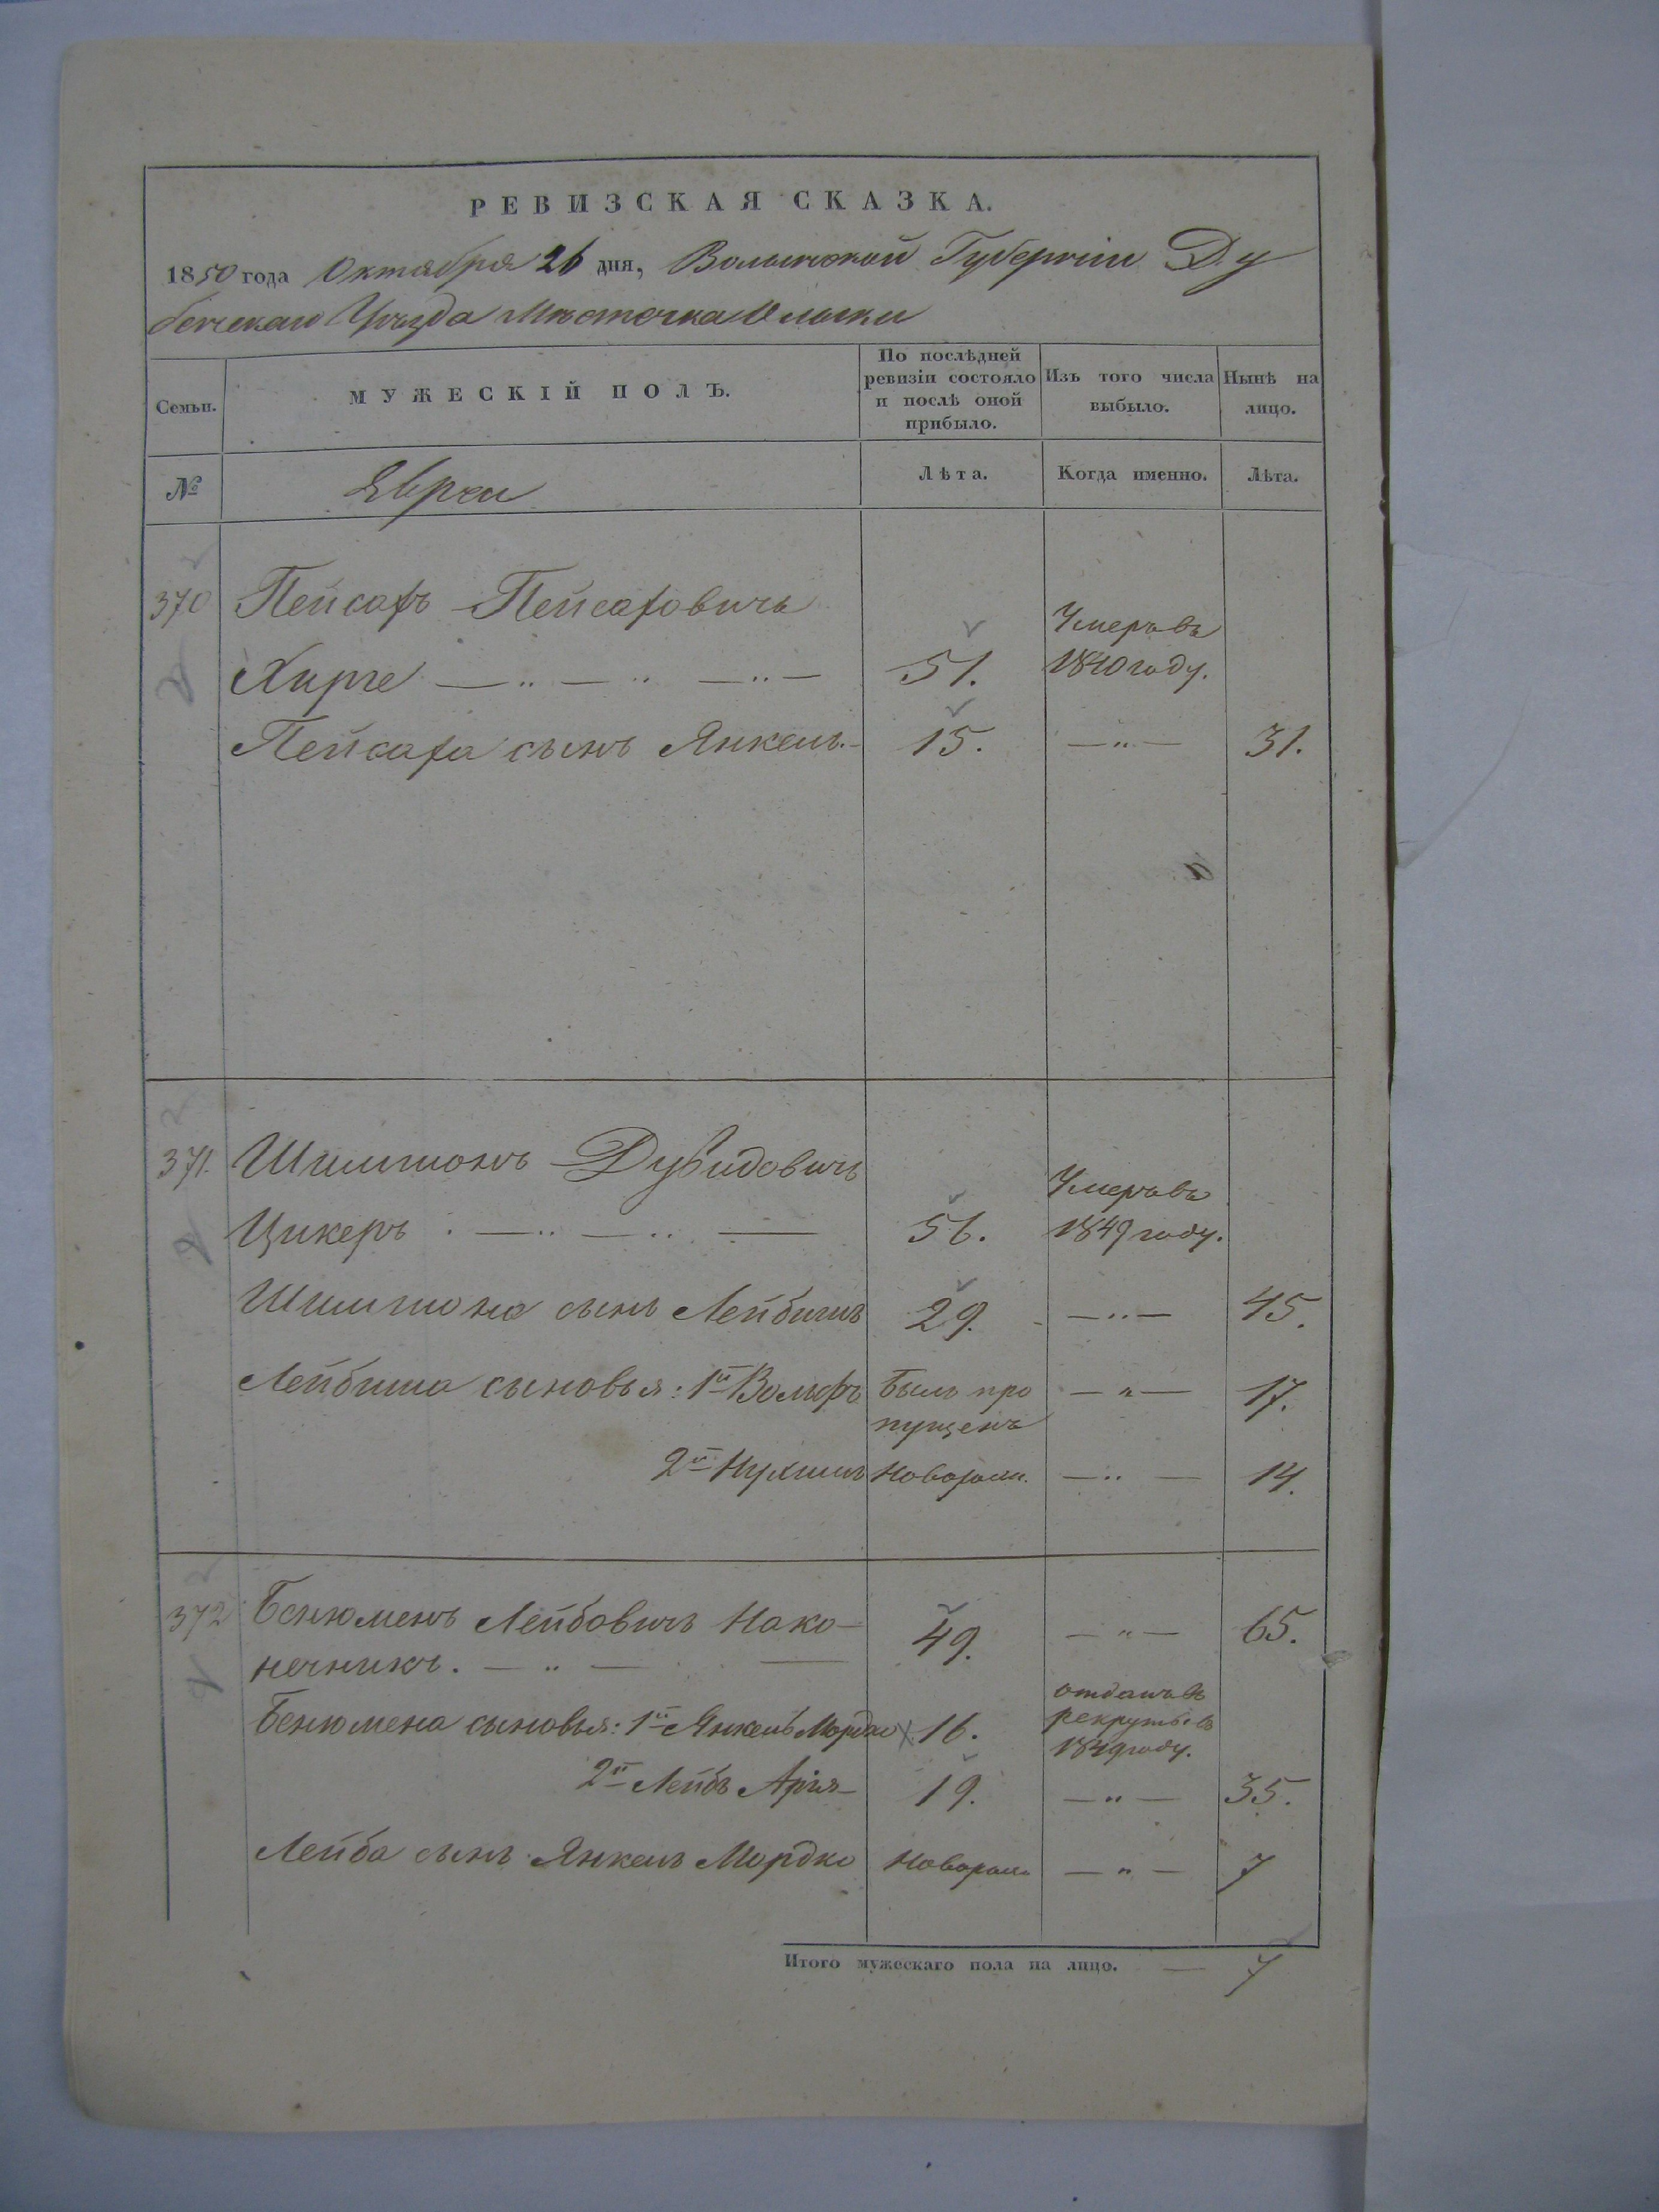 РЕВИЗСКАЯ СКАЗКА.
1850 года Октября 26 дня, Волынской Губерніи Ду
бенскаго Уѣзда Мѣстечка Олыки
Семьи.
МУЖЕСКІЙ ПОЛЪ.
По послѣдней ревизіи состояло и послѣ оной прибыло.
Изъ того числа выбыло.
Нынѣ на лицо.
№
Евреи
Лѣта.
Когда именно.
Лѣта.
370 Пейсахъ Пейсаховичъ
Умеръ въ
51. 1840 году.
Пейсаха сынъ Янкель 15. —"— 31.
371. Шимшонъ Дувидовичъ
Умеръ въ
Цикеръ 56. 1849 году.
Шимшона сынъ Лейбишъ 29. —"— 45.
Лейбиша сыновья: 1й Вольфъ Былъ про —"— 17.
пущенъ
2й Нухимъ Новорожд. —"— 14.
372 Бенюменъ Лейбовичъ Нако- 49. —"— 65.
нечникъ. —"—
отданъ въ
Бенюмена сыновья: 1й Янкель Мордко 16. рекруты въ
1849 году.
2й Лейбъ Арія 19. —"— 35.
Лейба сынъ Янкель Мордко Новорожд —"— 7
Итого мужескаго пола на лицо. — 7